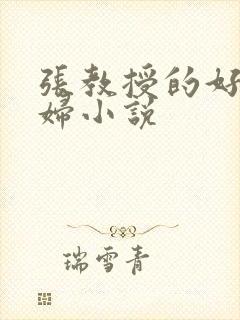 張教授的好
婦小説
瑞雪青